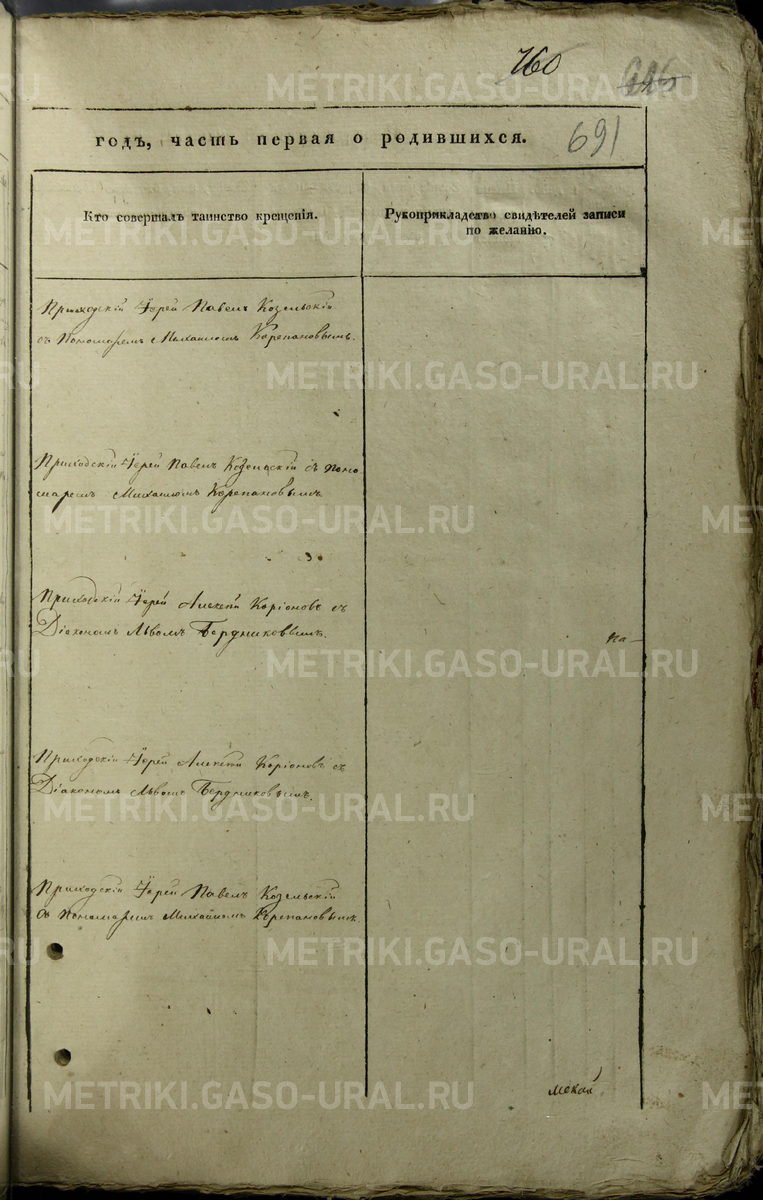 760
METRIKI.GASO-URAL.RU
годъ, часть первая о родившихся.
691
Кто совершалъ таинство крещенія.
Рукоприкладство свидѣтелей записи
по желанію.
Приходскій Іерей Павелъ Козельскій
съ Пономаремъ Михаиломъ Корепановымъ.
METRIKI.GASO-URAL.RU
Приходскій Іерей Павелъ Козельскій съ Поно
маремъ Михаиломъ Корепановымъ
METRIKI.GASO-URAL.RU
Приходскій Іерей Алексій Коріоновъ съ
Діакономъ Львомъ Бердниковымъ.
METRIKI.GASO-URAL.RU
Приходскій Іерей Алексій Коріоновъ съ
Діакономъ Львомъ Бердниковымъ.
METRIKI.GASO-URAL.RU
Приходскій Іерей Павелъ Козельскій
съ Пономаремъ Михаиломъ Корепановымъ.
METRIKI.GASO-URAL.RU
METRIKI.GASO-URAL.RU